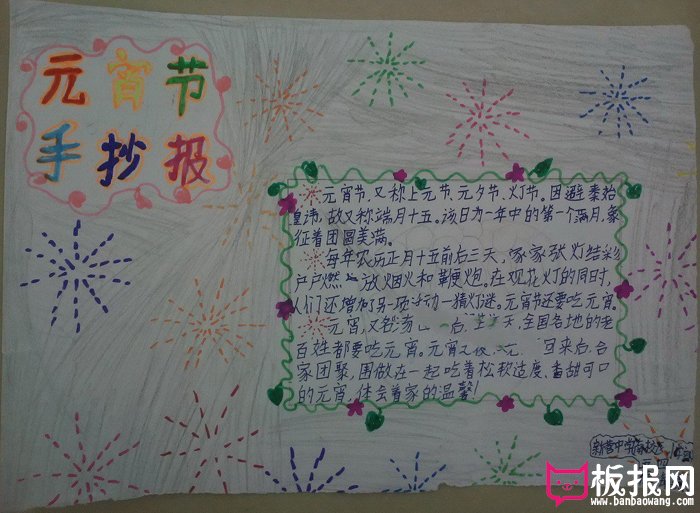 元宵节
手抄报
元宵节,又称上元节、元夕节、灯节。因避秦始
皇讳,故又称端月十五。该日为一年中的第一个满月,象
征着团圆美满。
每年农历正月十五前后三天,家家张灯结彩
户户燃放烟火和鞭炮。在观花灯的同时,
人们还增加另一项活动一猜灯谜。元宵节还要吃元宵。
元宵,又称汤 后 天,全国各地的老
百姓都要吃元宵。元宵又 回来后,合
家团聚,围做在一起吃着松软适度、香甜可口
的元宵,体会着家的温馨!
新营中学
板报网
www.banbaowang.com